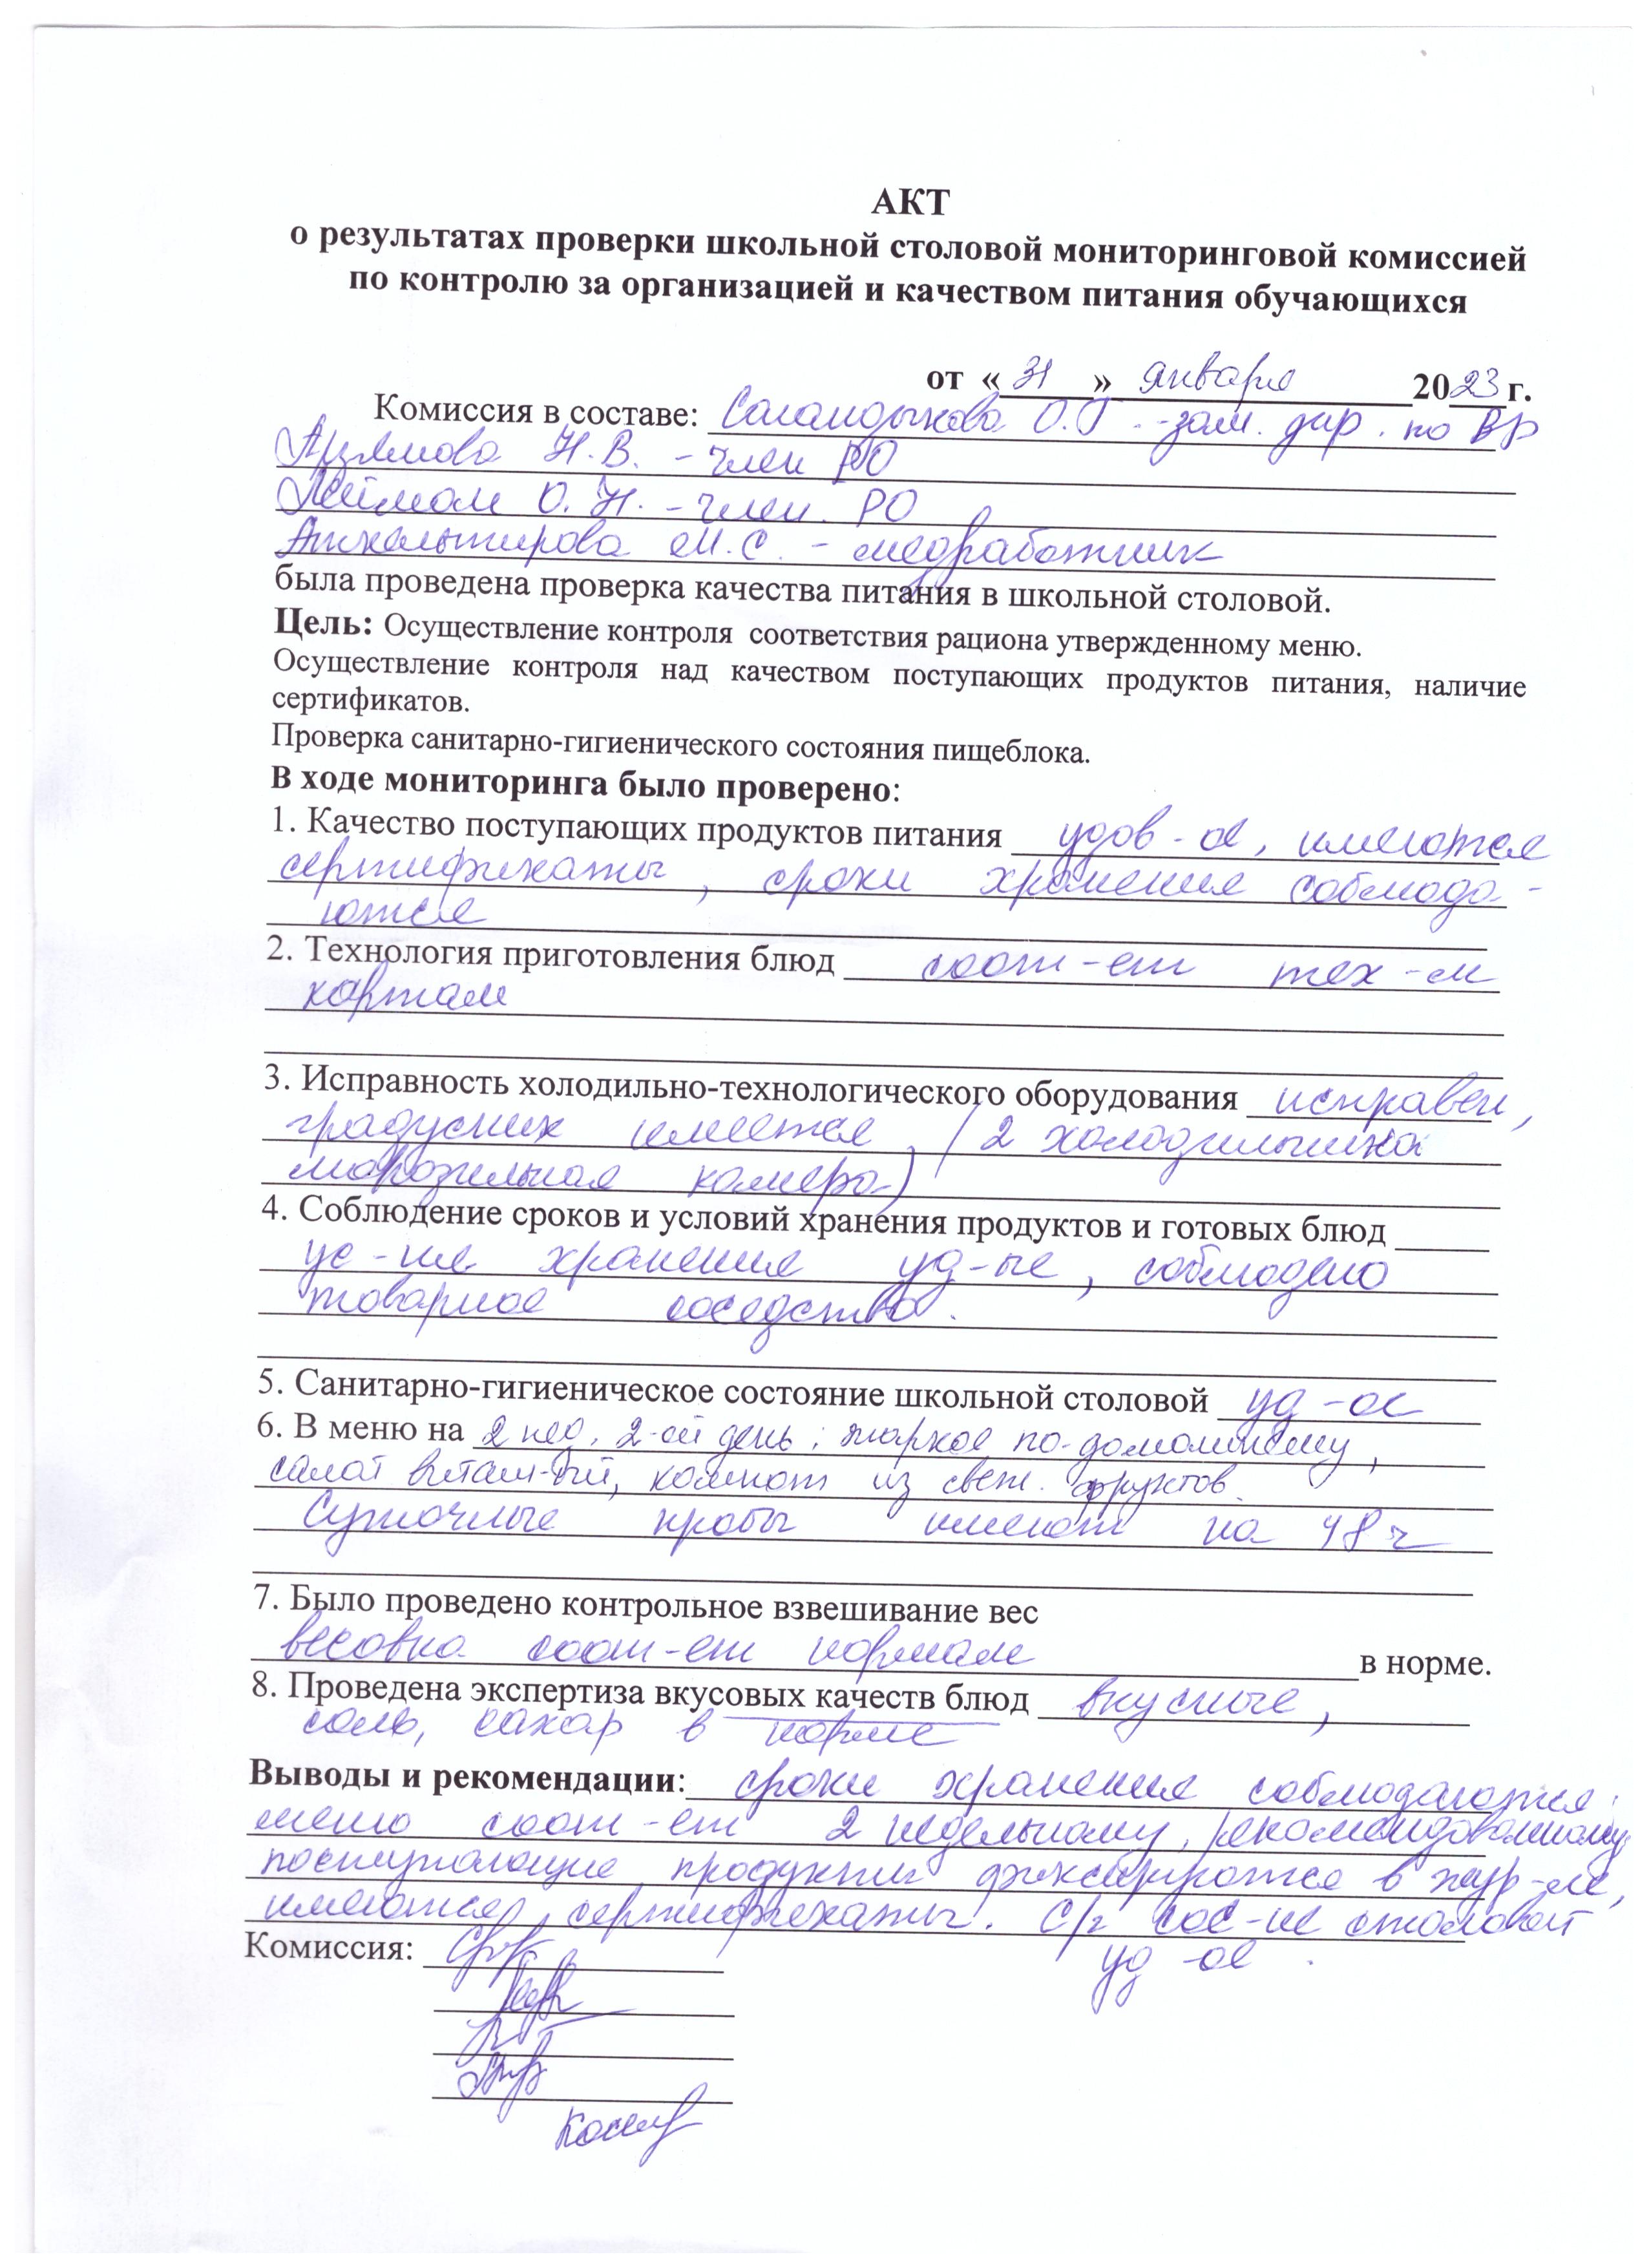 АКТ
о результатах проверки школьной столовой мониторинговой комиссией
по контролю за организацией и качеством питания обучающихся
от «31» января 2023 г.
Комиссия в составе: О.Г. - зам. дир. по ВР
Н.В. - член РО
О.Н. - член. РО
М.С. - медработник
была проведена проверка качества питания в школьной столовой.
Цель: Осуществление контроля соответствия рациона утвержденному меню.
Осуществление контроля над качеством поступающих продуктов питания, наличие
сертификатов.
Проверка санитарно-гигиенического состояния пищеблока.
В ходе мониторинга было проверено:
1. Качество поступающих продуктов питания удов-ое, имеются
сертификаты, сроки хранения соблюда-
ются
2. Технология приготовления блюд соот-ет тех-м
картам
3. Исправность холодильно-технологического оборудования исправен,
градусник имеется, (2 холодильника
морозильная камера)
4. Соблюдение сроков и условий хранения продуктов и готовых блюд
ус-ия хранения уд-ые, соблюдено
товарное соседство.
5. Санитарно-гигиеническое состояние школьной столовой уд-ое
6. В меню на 2 нед, 2-ой день: жаркое по-домашнему,
салат витам-ый, компот из свеж. фруктов.
Суточные пробы имеют на 48 ч
7. Было проведено контрольное взвешивание вес
весовка соот-ет нормам в норме.
8. Проведена экспертиза вкусовых качеств блюд вкусные,
соль, сахар в норме
Выводы и рекомендации: сроки хранения соблюдаются,
меню соот-ет 2 недельному, рекомендованному,
поступающие продукты фиксируются в жур-ле,
имеются сертификаты. С/г сос-ие столовой
уд-ое.
Комиссия: